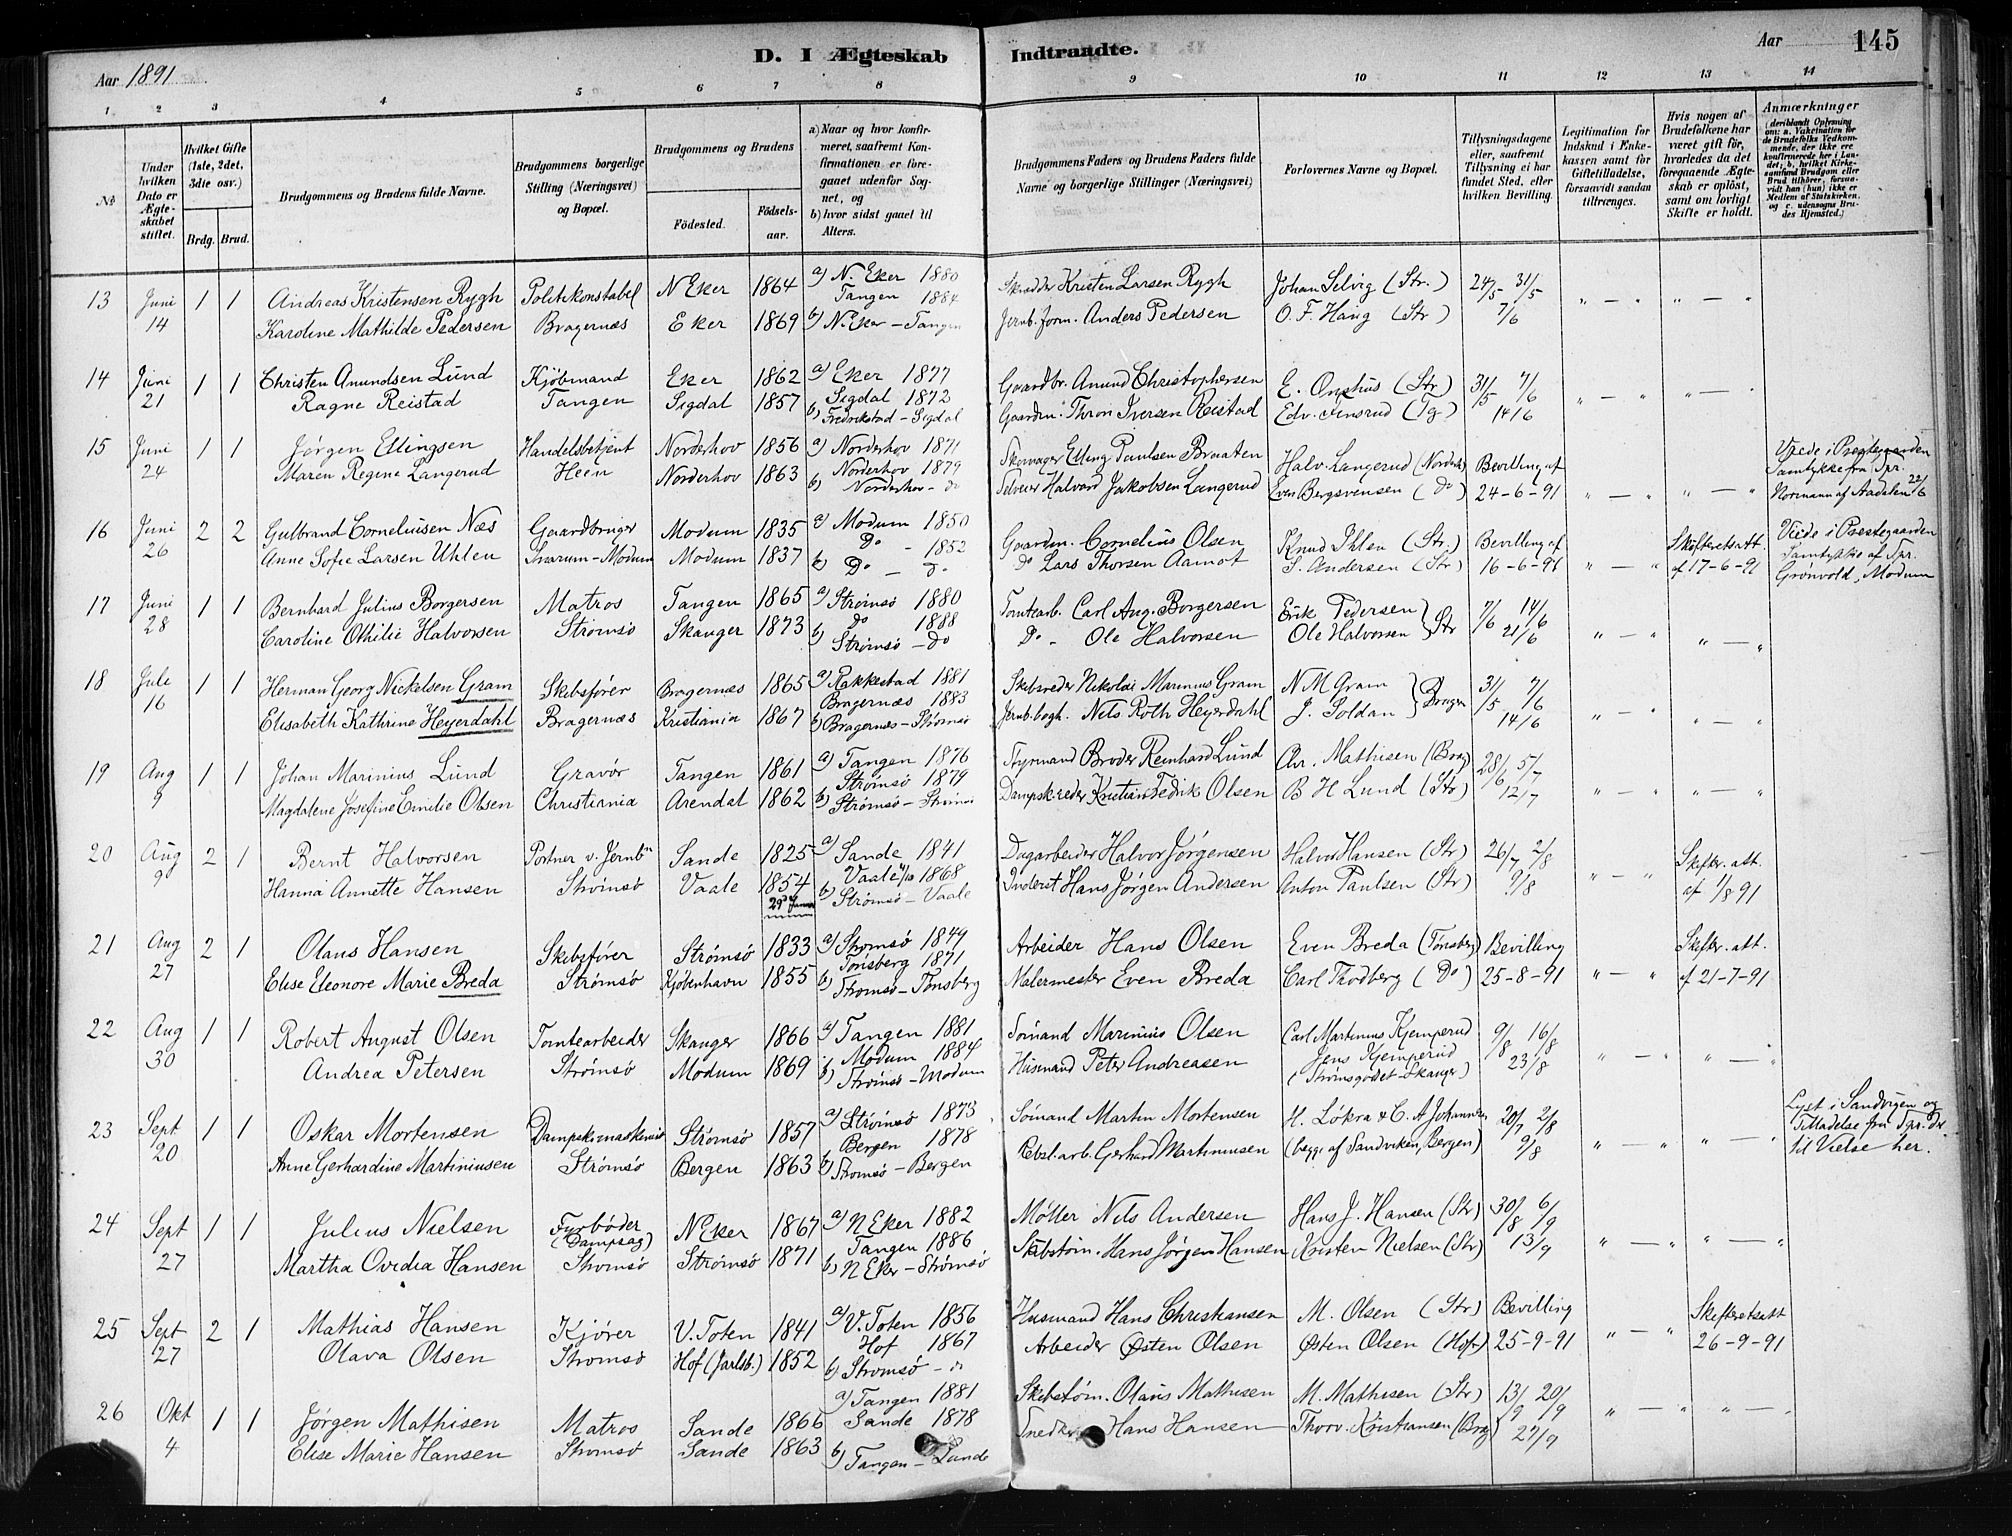 Aar 1891
D. I Ægteskab Indtraadte.
Aar 145
1 2 3 4 5 6 7 8 9 10 11 12 13 14
№
Under hvilken Dato er Ægteskabet stiftet.
Hvilket Gifte (1ste, 2det, 3die osv.)
Brdg. Brud.
Brudgommens og Brudens fulde Navne.
Brudgommens borgerlige Stilling (Næringsvei) og Bopæl.
Brudgommens og Brudens
Fødested.
Fødselsaar.
a) Naar og hvor konfirmeret, saafremt Konfirmationen er foregaaet udenfor Sognet, og
b) hvor sidst gaaet til Alters.
Brudgommens Faders og Brudens Faders fulde Navne og borgerlige Stillinger (Næringsvei)
Forlovernes Navne og Bopæl.
Tillysningsdagene eller, saafremt Tillysning ei har fundet Sted, efter hvilken Bevilling.
Legitimation for Indskud i Enkekassen samt for Giftetilladelse, forsaavidt saadan tiltrænges.
Hvis nogen af Brudefolkene har været gift før, hvorledes da det foregaaende Ægteskab er opløst, samt om lovligt Skifte er holdt.
Anmærkninger (deriblandt Oplysning om: a. Vakcination for de Brudefolks Vedkommende, der ikke ere konfirmerede her i Landet; b. hvilket Kirkesamfund Brudgom eller Brud tilhører, forsaavidt han (hun) ikke er Medlem af Statskirken, og c. udensogns Brudes Hjemsted.)
13 Juni 14 1 1 Andreas Kristensen Rygh Politikonstabel N Eker 1864 a) N. Eker 1880 Skrædder Kristen Larsen Rygh Johan Selvig (Str.) 24/5 31/5
Karoline Mathilde Pedersen Bragernæs Eker 1869 Tangen 1884 b) N. Eker - Tangen Jernb. form. Anders Pedersen O. F. Haug (Str) 7/6
14 Juni 21 1 1 Christen Anundsen Lund Kjøbmand Eker 1862 a) Eker 1877 Gaardbr. Anund Christophersen E. (Str) 31/5 7/6
Ragne Reistad Tangen Sigdal 1857 Sigdal 1872 b) Fredrikstad - Sigdal Gaardm. Thron Iversen Reistad Edv. (Tg) 14/6
15 Juni 24 1 1 Jørgen Ellingsen Handelsbetjent Norderhov 1856 a) Norderhov 1871 Skomager Elling Paulsen Braaten Halv. Langerud (Norderh) Bevilling af Viede i Præstegaarden
Maren Regine Langerud Heen Norderhov 1863 Norderhov 1879 b) Norderhov - do Selveier Halvard Jakobsen Langerud Even Bergsvensen (Do) 24-6-91 Samtykke fra Spr. Normann af Aadalen 22/6
16 Juni 26 2 2 Gulbrand Corneliusen Næs Gaardbruger Modum 1835 a) Modum 1850 Gaardm. Cornelius Olsen Knud Ihlen (Str.) Bevilling af Skifteretsatt. Viede i Præstegaarden
Anne Sofie Larsen Uhlen Snarum-Modum Modum 1837 Do - 1852 b) Do - do Do Lars Thorsen Aamot S. Andersen (Str) 16-6-91 af 17-6-91 Samtykke af Spr. Grønvold, Modum
17 Juni 28 1 1 Bernhard Julius Borgersen Matros Tangen 1865 a) Strømsø 1880 Tomtearb. Carl Aug. Borgersen Erik Pedersen Str 7/6 14/6
Caroline Othilie Halvorsen Strømsø Skauger 1873 Do 1888 b) Strømsø - Do Do - Ole Halvorsen Ole Halvorsen 21/6
18 Jule 16 1 1 Herman Georg Nickelsen Gram Skibsfører Bragernæs 1865 a) Rakkestad 1881 Skibsreder Nikolai Marinius Gram N M Gram Bragen 31/5 7/6
Elisabeth Kathrine Heyerdahl Bragernæs Kristiania 1867 Bragernæs 1883 b) Bragernæs - Strømsø Jernb. bogh. Nels Roth Heyerdahl J. Soldan 14/6
19 Aug 9 1 1 Johan Marinius Lund Gravør Tangen 1861 a) Tangen 1876 Styrmand Broder Reinhard Lund Chr. Mathisen (Brag) 28/6 5/7
Magdalene Josefine Emilie Olsen Christiania Arendal 1862 Strømsø 1879 b) Strømsø - Strømsø Dampsk.reder Kristian Fedrik Olsen B H Lund (Str) 12/7
20 Aug 9 2 1 Bernt Halvorsen Portner v. Jernbn Sande 1825 a) Sande 1841 Dagarbeider Halvor Jørgensen Halvor Hansen (Str) 26/7 2/8 Skifter. att.
Hanna Annette Hansen Strømsø Vaale 1854 Vaale 1868 b) Strømsø - Vaale Inderst Hans Jørgen Andersen Anton Paulsen (Str) 9/8 af 1/8 91
21 Aug 27 2 1 Olaus Hansen Skibsfører Strømsø 1833 a) Strømsø 1849 Arbeider Hans Olsen Even Breda (Tønsberg) Bevilling Skifter. att.
Elise Eleonore Marie Breda Strømsø Kjøbenhavn 1855 Tønsberg 1871 b) Strømsø - Tønsberg Malermester Even Breda Carl Thodberg (Do) 25-8-91 af 21-7-91
22 Aug 30 1 1 Robert August Olsen Tomtearbeider Skauger 1866 a) Tangen 1881 Sømand Marinius Olsen Carl Martinus Kjemperud 9/8 16/8
Andrea Petersen Strømsø Modum 1869 Modum 1884 b) Strømsø - Modum Husmand Peter Andreasen Jens Kjemperud (Strømsgodset-Skauger) 23/8
23 Sept 20 1 1 Oskar Mortensen Dampskmaskinist Strømsø 1857 a) Strømsø 1873 Sømand Martin Mortensen H. Løkra & C. A. Johannsen 20/7 2/8 Lyst i Sandvigen og
Anne Gerhardine Martiniusen Strømsø Bergen 1863 Bergen 1878 b) Strømsø - Bergen Rebsl. arb. Gerhard Martiniusen (begge af Sandviken, Bergen) 9/8 Tilladelse fra Spr. til Vielse her.
24 Sept 27 1 1 Julius Nielsen Fyrbøder (Dampsag) N. Eker 1867 a) N Eker 1882 Møller Nils Andersen Hans J. Hansen (Str) 30/8 6/9
Martha Ovidia Hansen Strømsø Strømsø 1871 Tangen 1886 b) N Eker - Strømsø Skibstøm. Hans Jørgen Hansen Kristen Nielsen (Str) 13/9
25 Sept 27 2 1 Mathias Hansen Kjører V. Toten 1841 a) V. Toten 1856 Husmand Hans Christiansen M. Olsen (Str) Bevilling Skifteretsatt
Olava Olsen Strømsø Hof (Jarlsb.) 1852 Hof 1867 b) Strømsø - do Arbeider Østen Olsen Østen Olsen (Hof) 25-9-91 26-9-91
26 Okt 4 1 1 Jørgen Mathisen Matros Sande 1866 a) Tangen 1881 Skibstøm. Olaus Mathisen M. Mathisen (Str) 13/9 20/9
Elise Marie Hansen Strømsø Sande 1863 Sande 1878 b) Tangen - Sande Hans Hansen Thorv. Kristiansen (Brag) 27/9